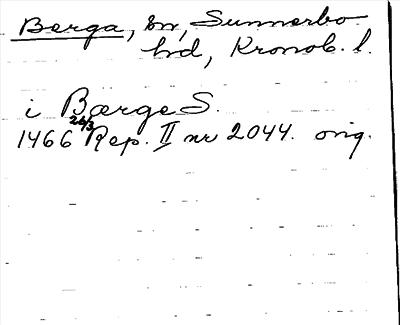 Berga, sn, Sunnerbo
hd, Kronob. l.
i Bærge S.
1466 26/3 Rep. II nr 2044. orig.